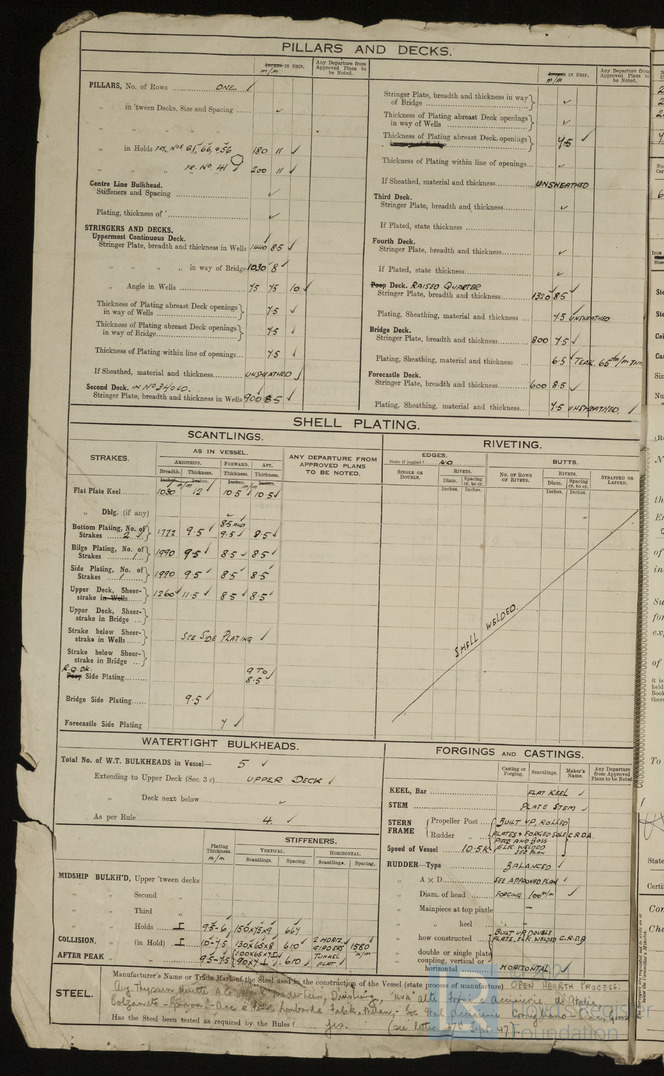 PILLARS AND DECKS.
IN SHIP.
m/m
Any Departure from Approved Plans to be Noted.
PILLARS, No. of Rows ONE ✓
„ in 'tween Decks, Size and Spacing ✓
„ in Holds FRS. Nos 61, 66, & 56 180 11 ✓
FR. No. 41 200 11 ✓
Centre Line Bulkhead.
Stiffeners and Spacing ✓
Plating, thickness of ✓
STRINGERS AND DECKS.
Uppermost Continuous Deck.
Stringer Plate, breadth and thickness in Wells 1440 8.5 ✓
„ „ „ „ in way of Bridge 1030 8 ✓
„ Angle in Wells 75 75 10 ✓
Thickness of Plating abreast Deck openings in way of Wells 7.5 ✓
Thickness of Plating abreast Deck openings in way of Bridge 7.5 ✓
Thickness of Plating within line of openings 7.5 ✓
If Sheathed, material and thickness UNSHEATHED ✓
Second Deck. IN No 2 HOLD.
Stringer Plate, breadth and thickness in Wells 900 8.5 ✓
IN SHIP.
m/m
Any Departure from Approved Plans to be Noted.
Stringer Plate, breadth and thickness in way of Bridge ✓
Thickness of Plating abreast Deck openings in way of Wells ✓
Thickness of Plating abreast Deck openings 7.5 ✓
Thickness of Plating within line of openings ✓
If Sheathed, material and thickness UNSHEATHED
Third Deck.
Stringer Plate, breadth and thickness ✓
If Plated, state thickness
Fourth Deck.
Stringer Plate, breadth and thickness ✓
If Plated, state thickness ✓
Poop Deck. RAISED QUARTER
Stringer Plate, breadth and thickness 1320 8.5 ✓
Plating, Sheathing, material and thickness 7.5 UNSHEATHED
Bridge Deck.
Stringer Plate, breadth and thickness 800 7.5 ✓
Plating, Sheathing, material and thickness 6.5 ✓ TEAK. 65 m/m
Forecastle Deck.
Stringer Plate, breadth and thickness 600 8.5 ✓
Plating, Sheathing, material and thickness 7.5 UNSHEATHED. ✓
SHELL PLATING.
SCANTLINGS.
STRAKES.
AS IN VESSEL.
AMIDSHIPS. FORWARD. AFT.
Breadth. Thickness. Thickness. Thickness.
ANY DEPARTURE FROM APPROVED PLANS TO BE NOTED.
Flat Plate Keel 1030 12 ✓ 10.5 ✓ 10.5 ✓
„ Dblg. (if any)
Bottom Plating, No. of Strakes 2 1772 9.5 ✓ 8.5 AND 9.5 ✓ 8.5 ✓
Bilge Plating, No. of Strakes 1 1990 9.5 ✓ 8.5 ✓ 8.5 ✓
Side Plating, No. of Strakes 1 1990 9.5 ✓ 8.5 ✓ 8.5
Upper Deck, Sheer-strake in Wells 1260 ✓ 11.5 ✓ 8.5 ✓ 8.5 ✓
Upper Deck, Sheer-strake in Bridge
Strake below Sheer-strake in Wells SEE SIDE PLATING ✓
Strake below Sheer-strake in Bridge
R.Q.DK. Poop Side Plating 9 TO 8.5 ✓
Bridge Side Plating 9.5 ✓
Forecastle Side Plating 7 ✓
RIVETING.
EDGES. BUTTS.
State if joggled? NO
SINGLE OR DOUBLE.
RIVETS.
Diam. Spacing cr. to cr.
Inches. Inches.
NO. OF ROWS OF RIVETS.
RIVETS.
Diam. Spacing cr. to cr.
Inches. Inches.
STRAPPED OR LAPPED.
SHELL WELDED.
WATERTIGHT BULKHEADS.
Total No. of W.T. BULKHEADS in Vessel— 5 ✓
Extending to Upper Deck (Sec. 3 c) UPPER DECK ✓
„ Deck next below ✓
„ As per Rule 4. ✓
Plating Thickness m/m
STIFFENERS.
VERTICAL. HORIZONTAL.
Scantlings. Spacing. Scantlings. Spacing.
MIDSHIP BULKH'D, Upper 'tween decks
„ Second „
„ Third „
„ Holds 9.5-6 150x75x9 ✓ 667
COLLISION, „ (in Hold) 10-7.5 130x65x8 610 ✓ 2 HORIZ. GIRDERS 1580 m/m
AFTER PEAK „ „ 9.5-7.5 ✓ 610 ✓ TUNNEL FLAT
FORGINGS AND CASTINGS.
Casting or Forging. Scantlings. Maker's Name. Any Departure from Approved Plans to be Noted.
KEEL, Bar FLAT KEEL ✓
STEM PLATE STEM ✓
STERN FRAME Propeller Post BUILT UP, ROLLED
Rudder „ PLATES & FORGED SOLE PIECE AND BOSS C.R.D.A.
Speed of Vessel 10.5K ELEC WELDED
RUDDER—Type BALANCED ✓
„ A x D SEE APPROVED PLAN ✓
„ Diam. of head FORGING 100 m/m ✓
„ Mainpiece at top pintle —
„ „ heel —
„ how constructed BUILT UP DOUBLE PLATE, ELEC WELDED C.R.D.A.
„ double or single plate coupling, vertical or horizontal HORIZONTAL ✓
STEEL. Manufacturer's Name or Trade Mark of the Steel used in the construction of the Vessel (state process of manufacture) OPEN HEARTH PROCESS:
Has the Steel been tested as required by the Rules? yes.
Foundation